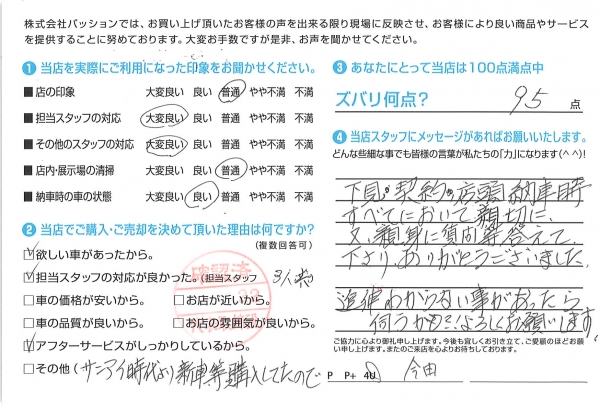 株式会社パッションでは、お買い上げ頂いたお客様の声を出来る限り現場に反映させ、お客様により良い商品やサービス
を提供することに努めております。大変お手数ですが是非、お声を聞かせてください。
❶ 当店を実際にご利用になった印象をお聞かせください。
■ 店の印象 大変良い 良い 普通 やや不満 不満
■ 担当スタッフの対応 大変良い 良い 普通 やや不満 不満
■ その他のスタッフの対応 大変良い 良い 普通 やや不満 不満
■ 店内・展示場の清掃 大変良い 良い 普通 やや不満 不満
■ 納車時の車の状態 大変良い 良い 普通 やや不満 不満
❷ 当店でご購入・ご売却を決めて頂いた理由は何ですか?
(複数回答可)
☑欲しい車があったから。
☑担当スタッフの対応が良かった。(担当スタッフ 3人共)
□車の価格が安いから。 □お店が近いから。
□車の品質が良いから。 □お店の雰囲気が良いから。
☑アフターサービスがしっかりしているから。
□その他(サンアイ時代より新車等購入してたので
確認済
❸ あなたにとって当店は100点満点中
ズバリ何点? 95 点
❹ 当店スタッフにメッセージがあればお願いいたします。
どんな些細な事でも皆様の言葉が私たちの「力」になります(^^)!
下見・契約・店頭納車時
すべてにおいて親切に、
又、親身に質問等答えて、
下さり、ありがとうございました。
追伸わからない事があったら
伺うかも…!よろしくお願いします。
ご協力に心より御礼申し上げます。今後も宜しくお引き立て、ご愛顧のほどお願
い申し上げます。またのご来店を心よりお待ちしております。
P P+ 4U 今田